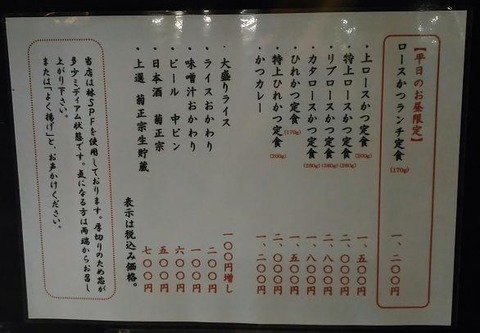 【平日のお昼限定】
ロースかつランチ定食(170g) 一、二〇〇円
・上ロースかつ定食(200g) 一、五〇〇円
・特上ロースかつ定食(280g) 二、〇〇〇円
・リブロースかつ定食(380g) 二、八〇〇円
・カタロースかつ定食(280g) 一、八〇〇円
・ひれかつ定食(170g) 一、五〇〇円
・特上ひれかつ定食(200g) 二、〇〇〇円
・かつカレー 一、二〇〇円
・大盛りライス 一〇〇円増し
・ライスおかわり 二〇〇円
・味噌汁おかわり 一〇〇円
・ビール 中ビン 六〇〇円
・日本酒 菊正宗 五〇〇円
・上選 菊正宗生貯蔵 七〇〇円
表示は税込み価格。
当店は林SPFを使用しております。厚切りのため芯が
多少ミディアム状態です。気になる方は両端からお召し
上がり下さい。
または「よく揚げ」と、お声かけください。